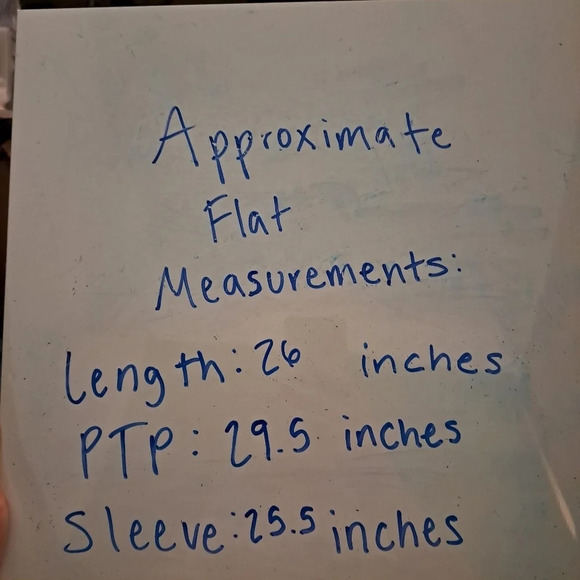 Approximate
Flat
Measurements:
Length: 26 inches
PTP: 29.5 inches
Sleeve: 25.5 inches